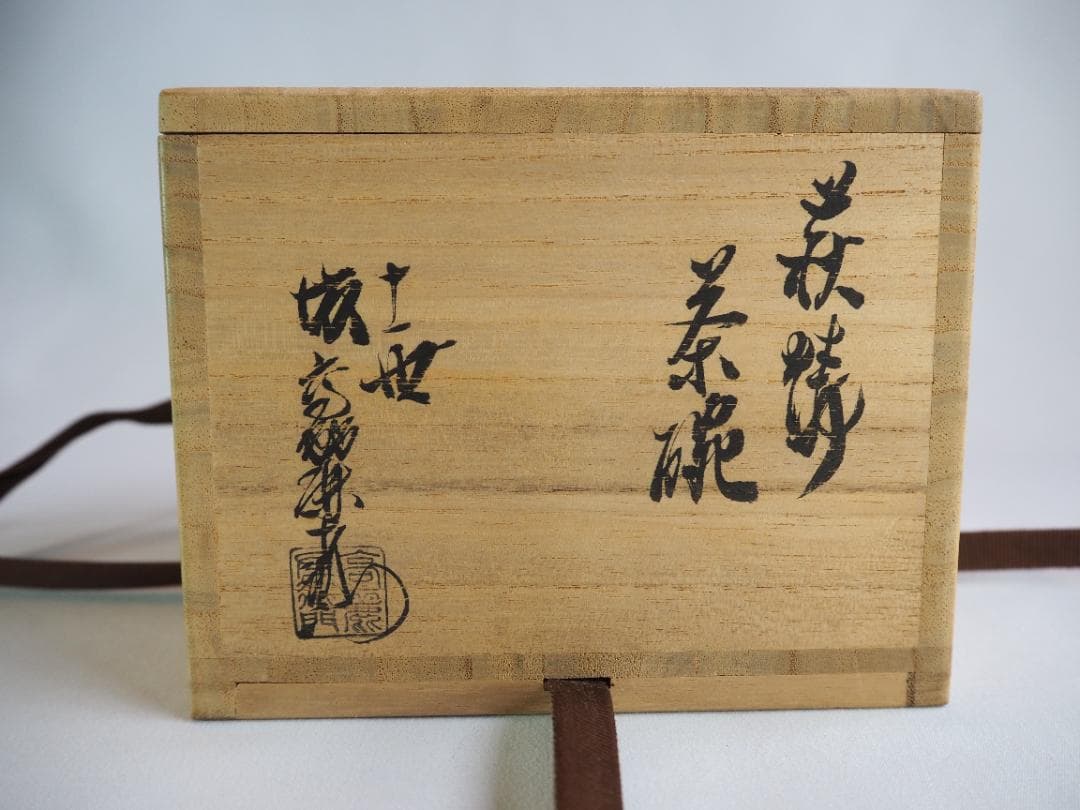 萩焼
茶碗
十一世
坂高麗左衛門
高麗
左衛門